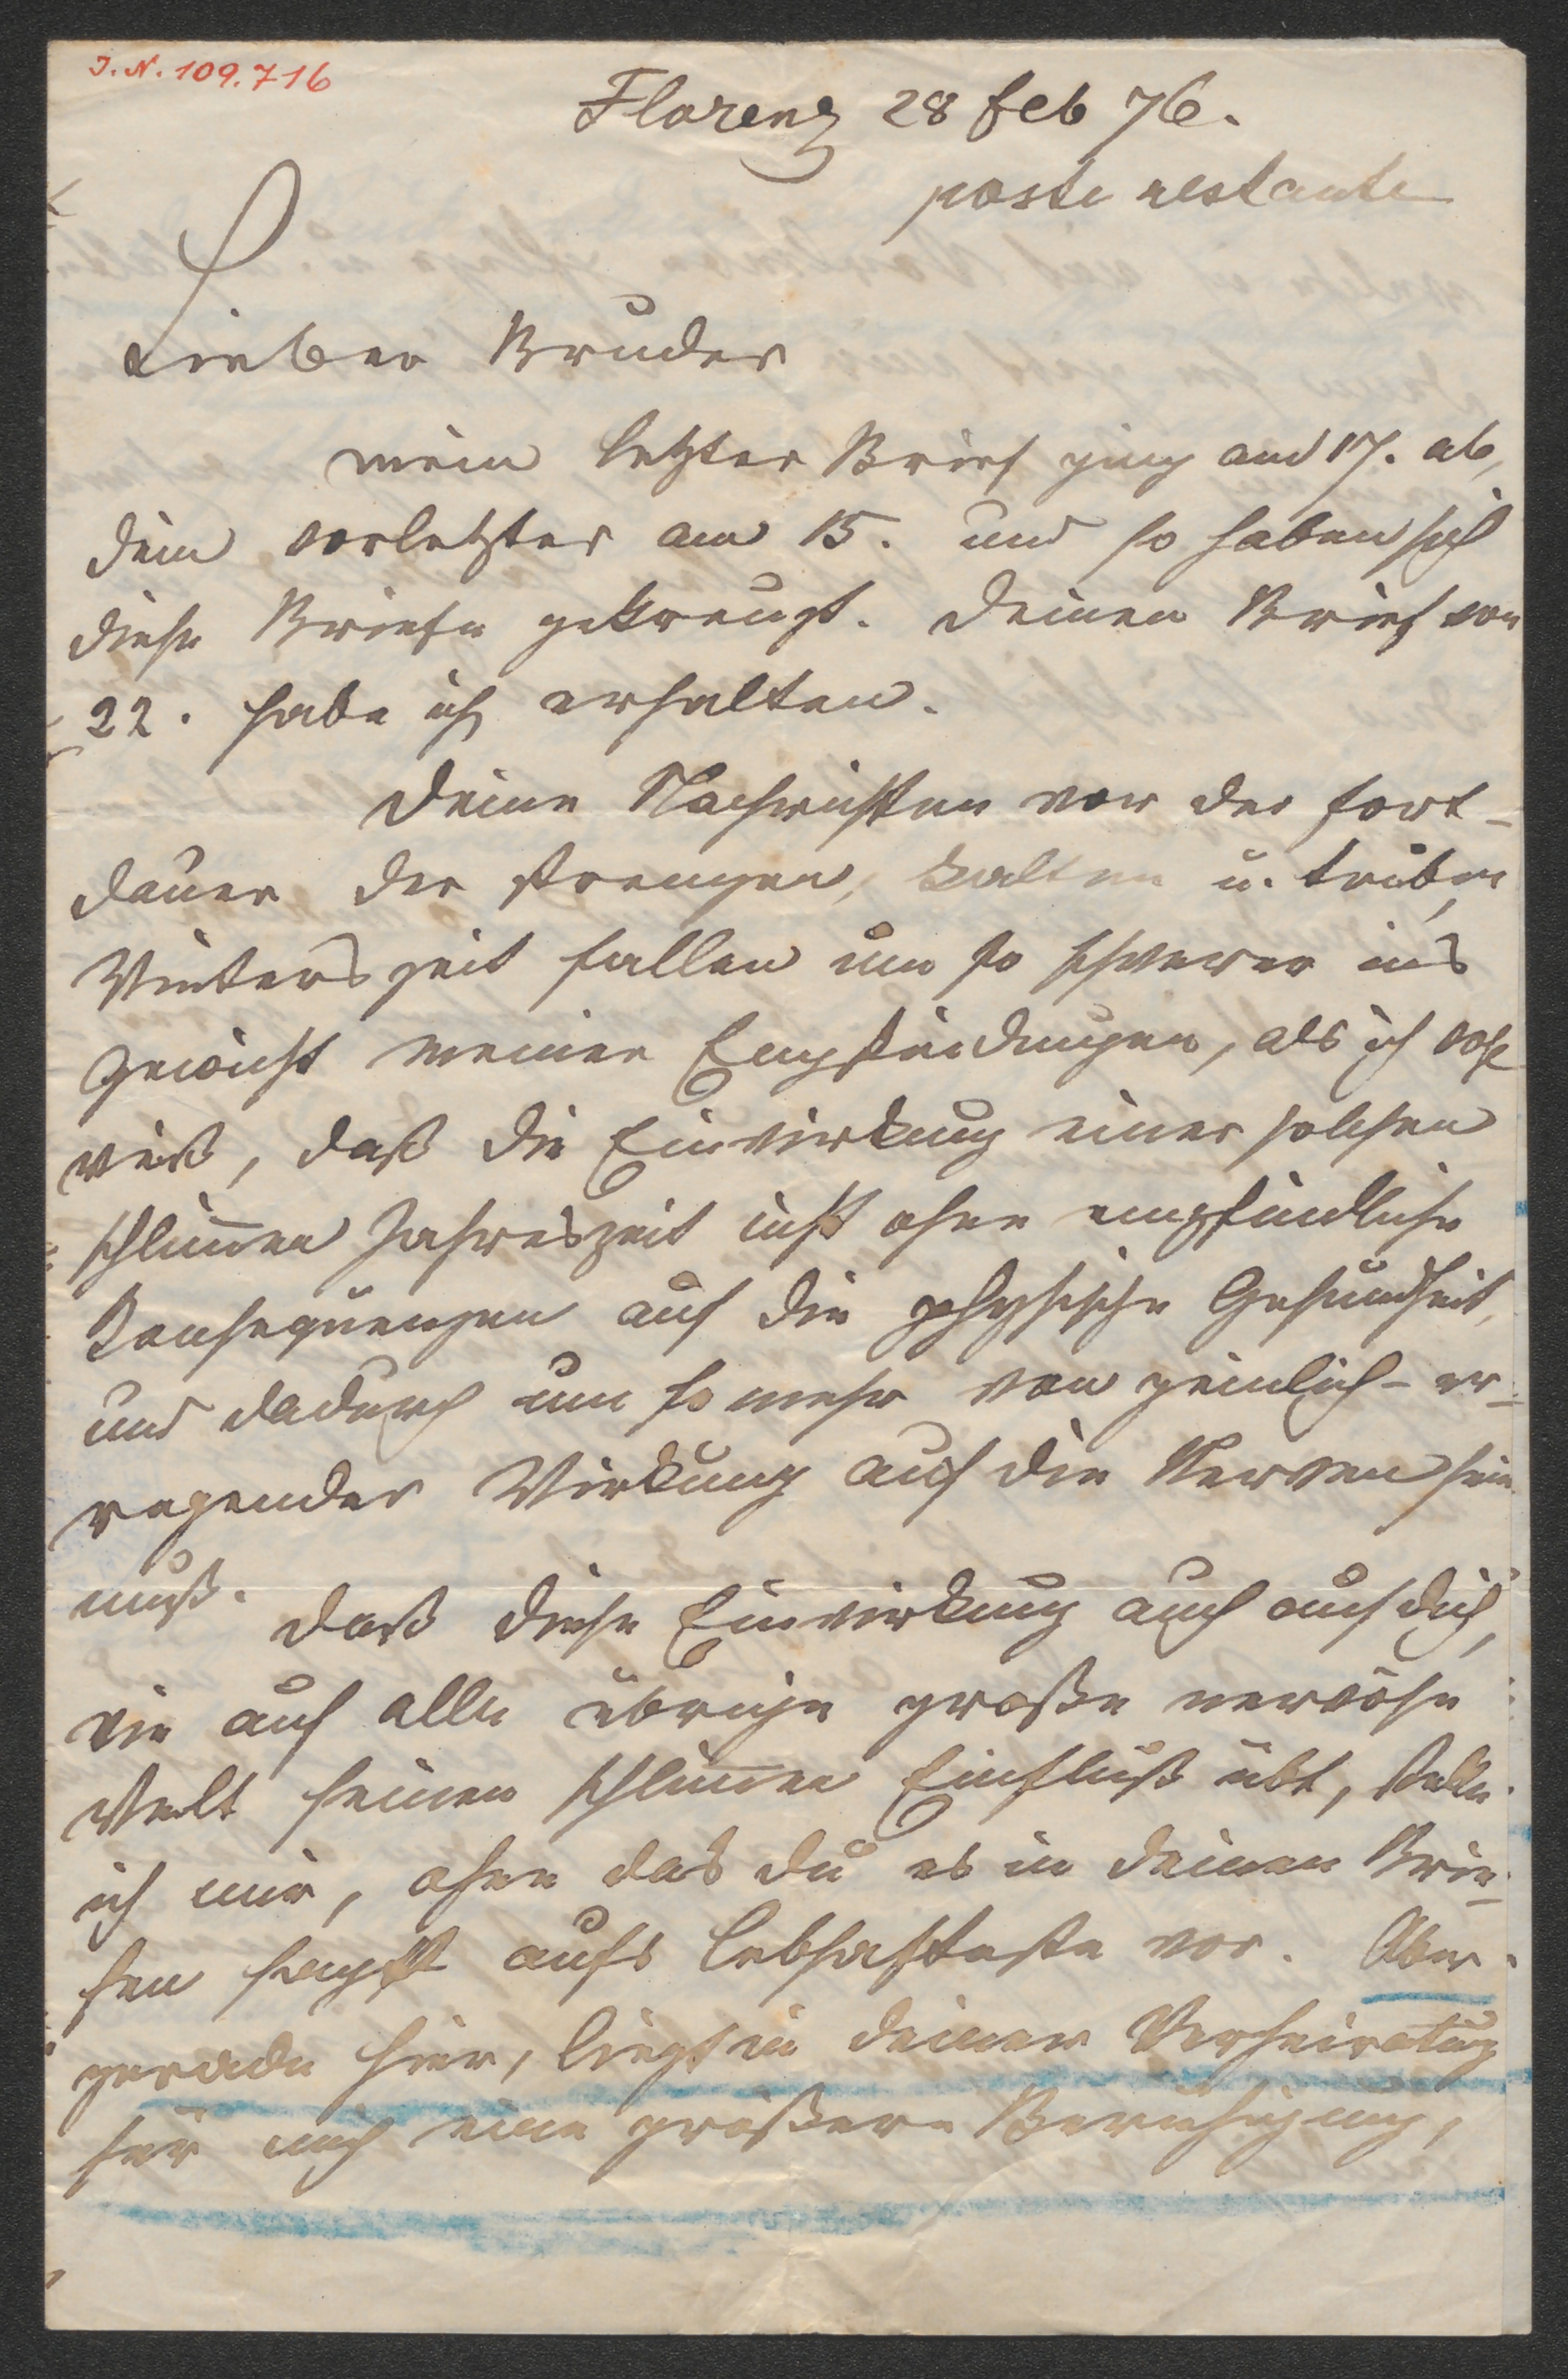 I.N. 109.716
Florenz 28 feb 76.
poste restante
Lieber Bruder
mein letzter Brief ging am 17. ab,
dein vorletzter am 15. und so haben sich
diese Briefe gekreuzt. Deinen Brief von
22. habe ich erhalten.
Deine Nachrichten von der Fort-
dauer der strengen, kalten u. trüben
Winterszeit fallen um so schwerer in's
Gewicht meiner Empfindungen, als ich
weiß, daß die Einwirkung einer solchen
schlim̄en Jahreszeit nicht ohne empfindliche
Konsequenzen auf die physische Gesundheit,
und dadurch um so mehr von peinlich-er-
regender Wirkung auf die Nerven sein
muß.
Daß diese Einwirkung auch auf dich,
wie auf alle übrige große nervöse
Welt seinen schlim̄en Einfluß übt, stelle
ich mir, ohne das du es in deinen Brie-
fen sagst aufs lebhafteste vor. Aber
gerade hier, liegt in deiner Verheiratung
für mich eine größere Beruhigung,